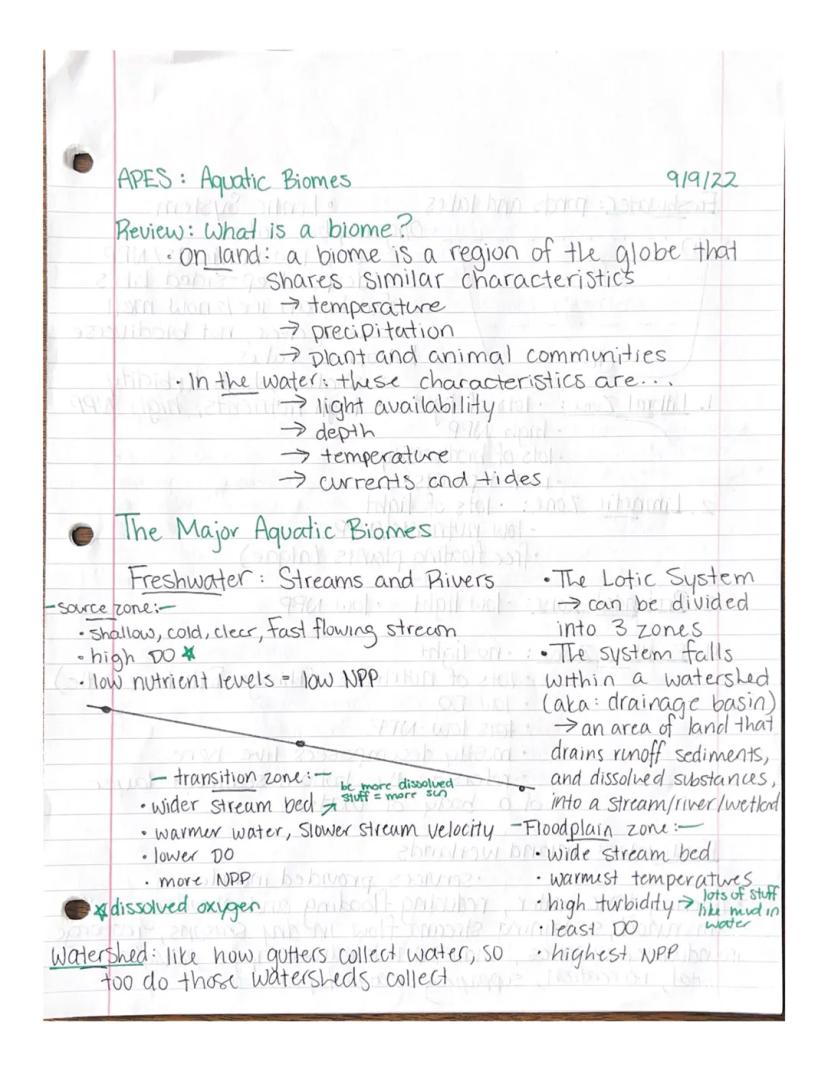 APES: Aquatic Biomes 9/9/22
Review: What is a biome?
• on land: a biome is a region of the globe that
shares similar characteristics
→ temperature
→ precipitation
→ plant and animal communities
• In the water: these characteristics are...
→ light availability
→ depth
→ temperature
→ currents and tides
The Major Aquatic Biomes
Freshwater: Streams and Rivers
- source zone: -
• shallow, cold, clear, fast flowing stream
• high DO ★
• low nutrient levels = low NPP
- transition zone: -
• wider stream bed ↗ bc more dissolved
stuff = more sun
• warmer water, slower stream velocity
• lower DO
• more NPP
• The Lotic System
→ can be divided
into 3 zones
• The system falls
within a watershed
(aka: drainage basin)
→ an area of land that
drains runoff sediments,
and dissolved substances,
into a stream/river/wetland
- Floodplain zone: -
• wide stream bed
• warmest temperatures
• high turbidity → lots of stuff
like mud in
water
• least DO
• highest NPP
★ dissolved oxygen
Watershed: like how gutters collect water, so
too do those watersheds collect